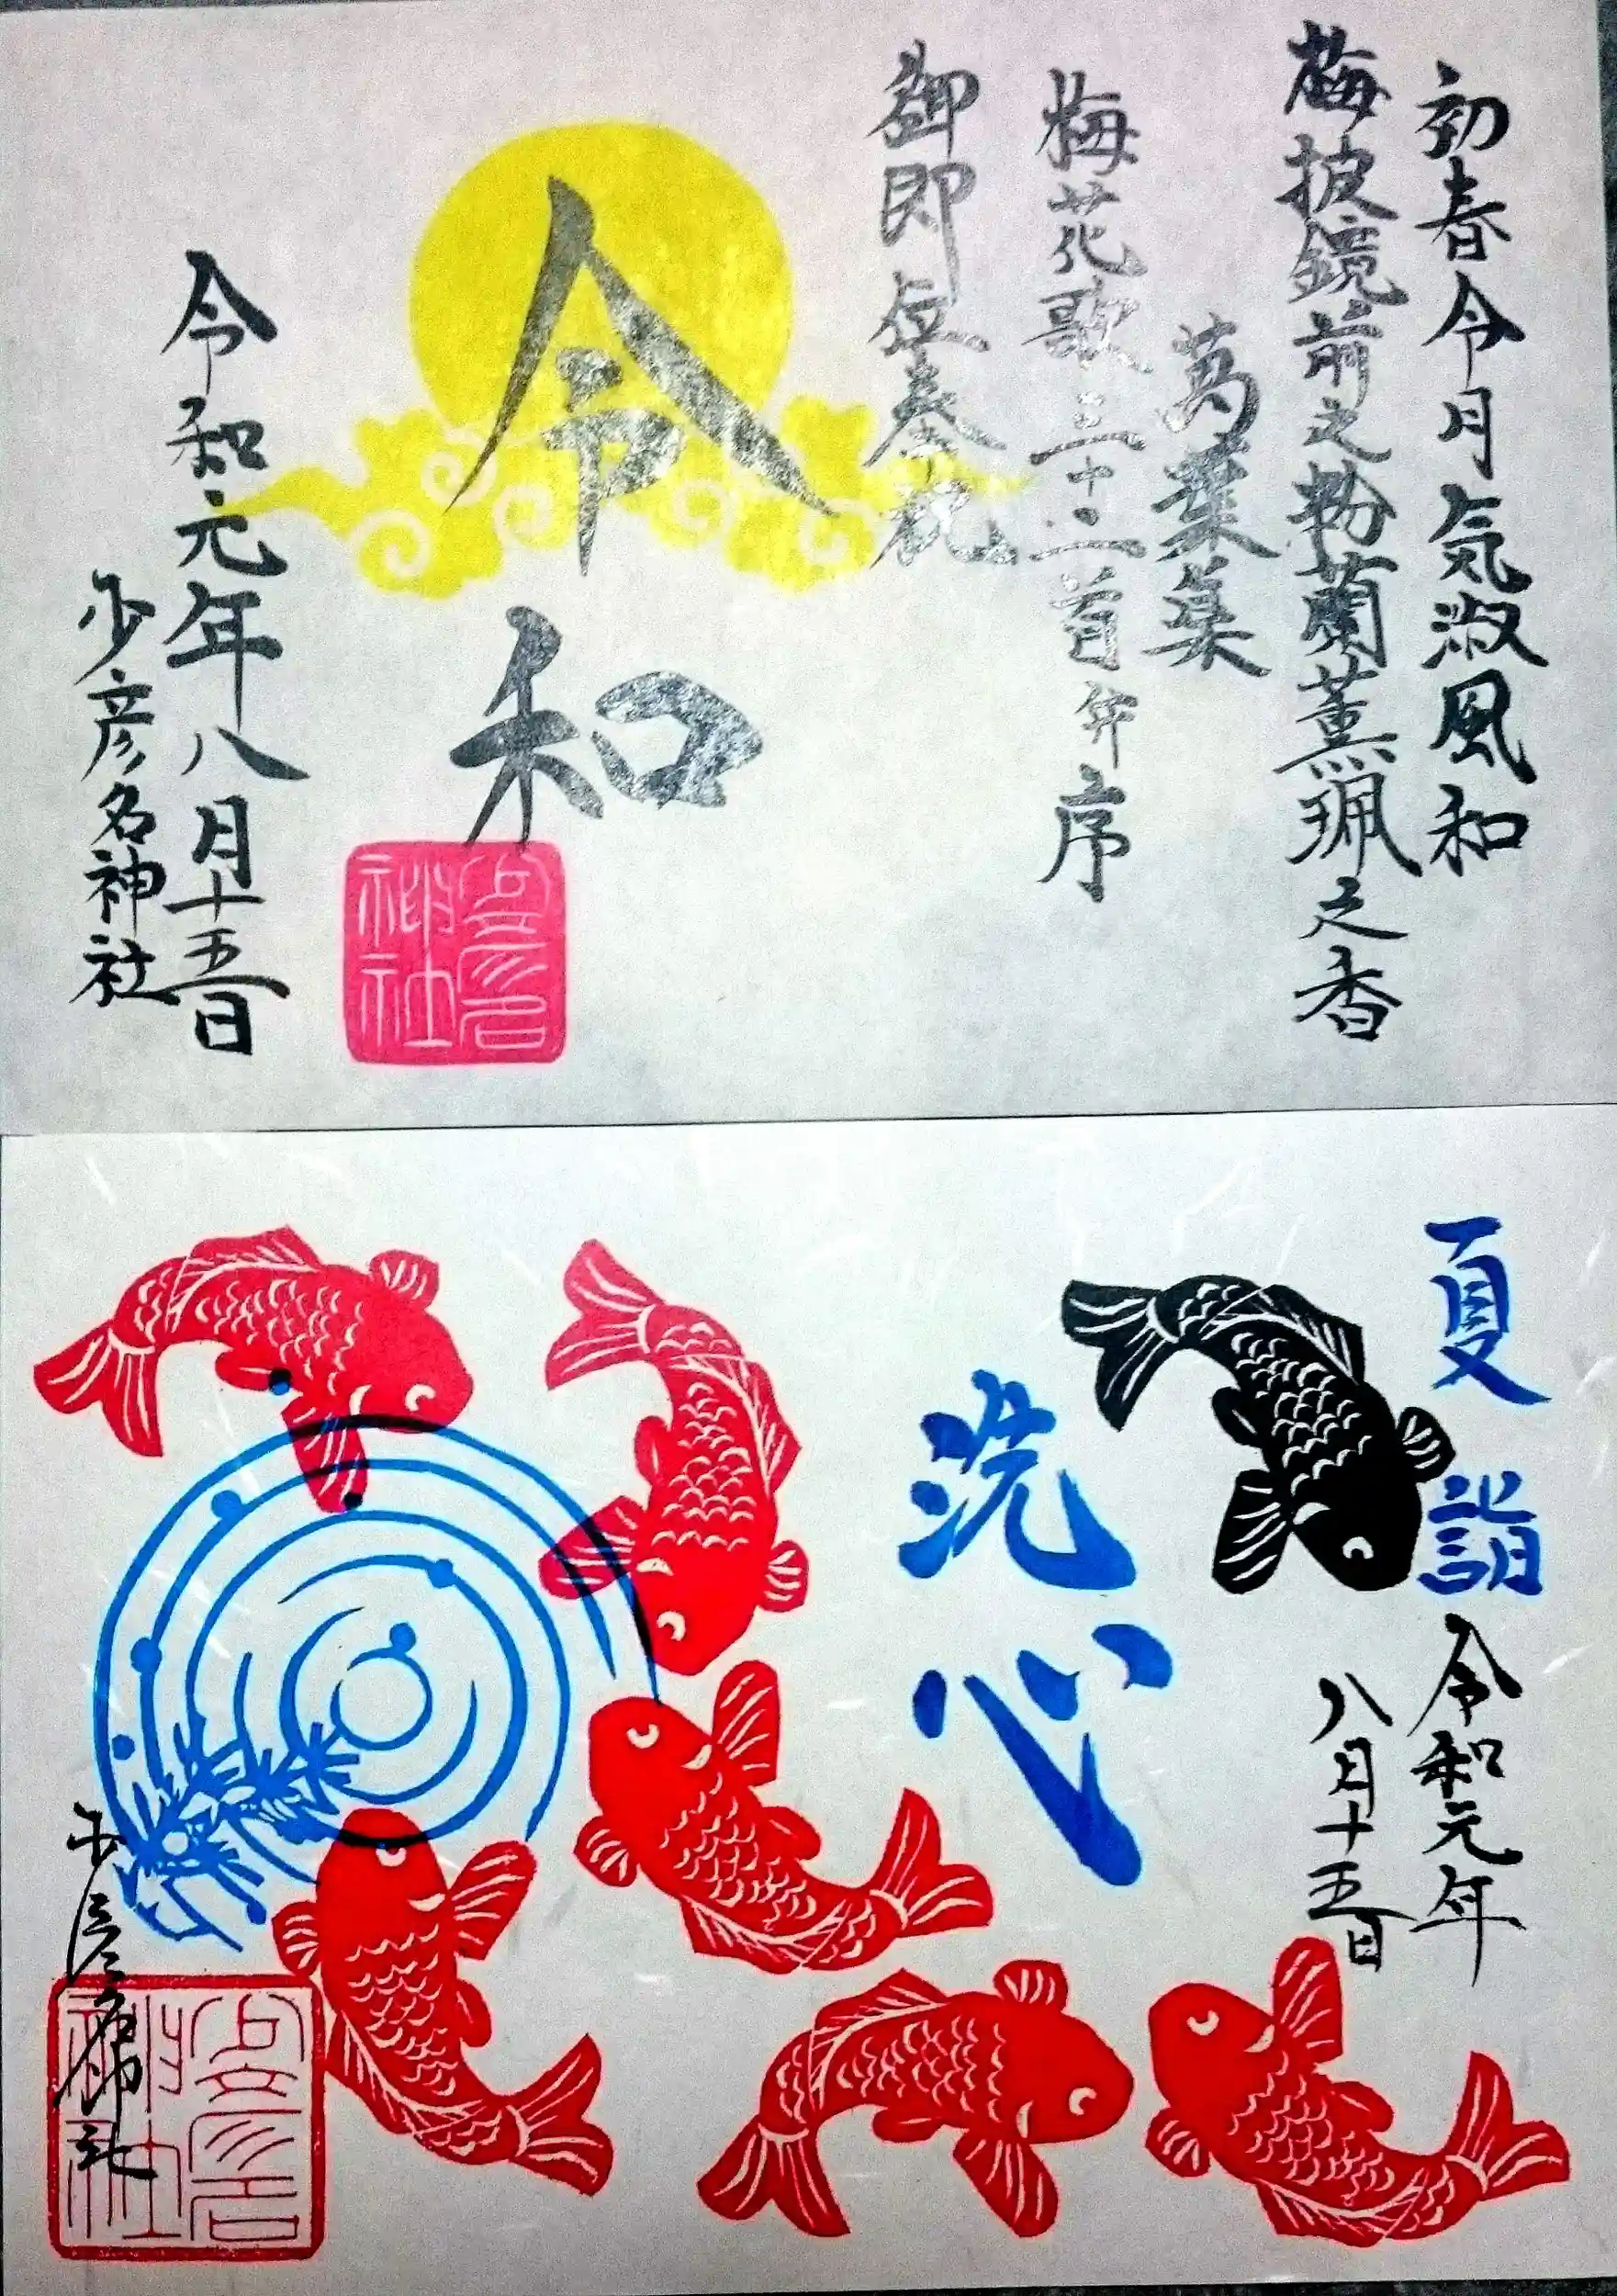 初春令月気淑風和
梅披鏡前之粉蘭薫珮之香
萬葉集
梅花歌三十二首并序
御即位奉祝
令和
令和元年八月十五日
少彦名神社
夏詣
令和元年
八月十五日
洗心
少彦名神社